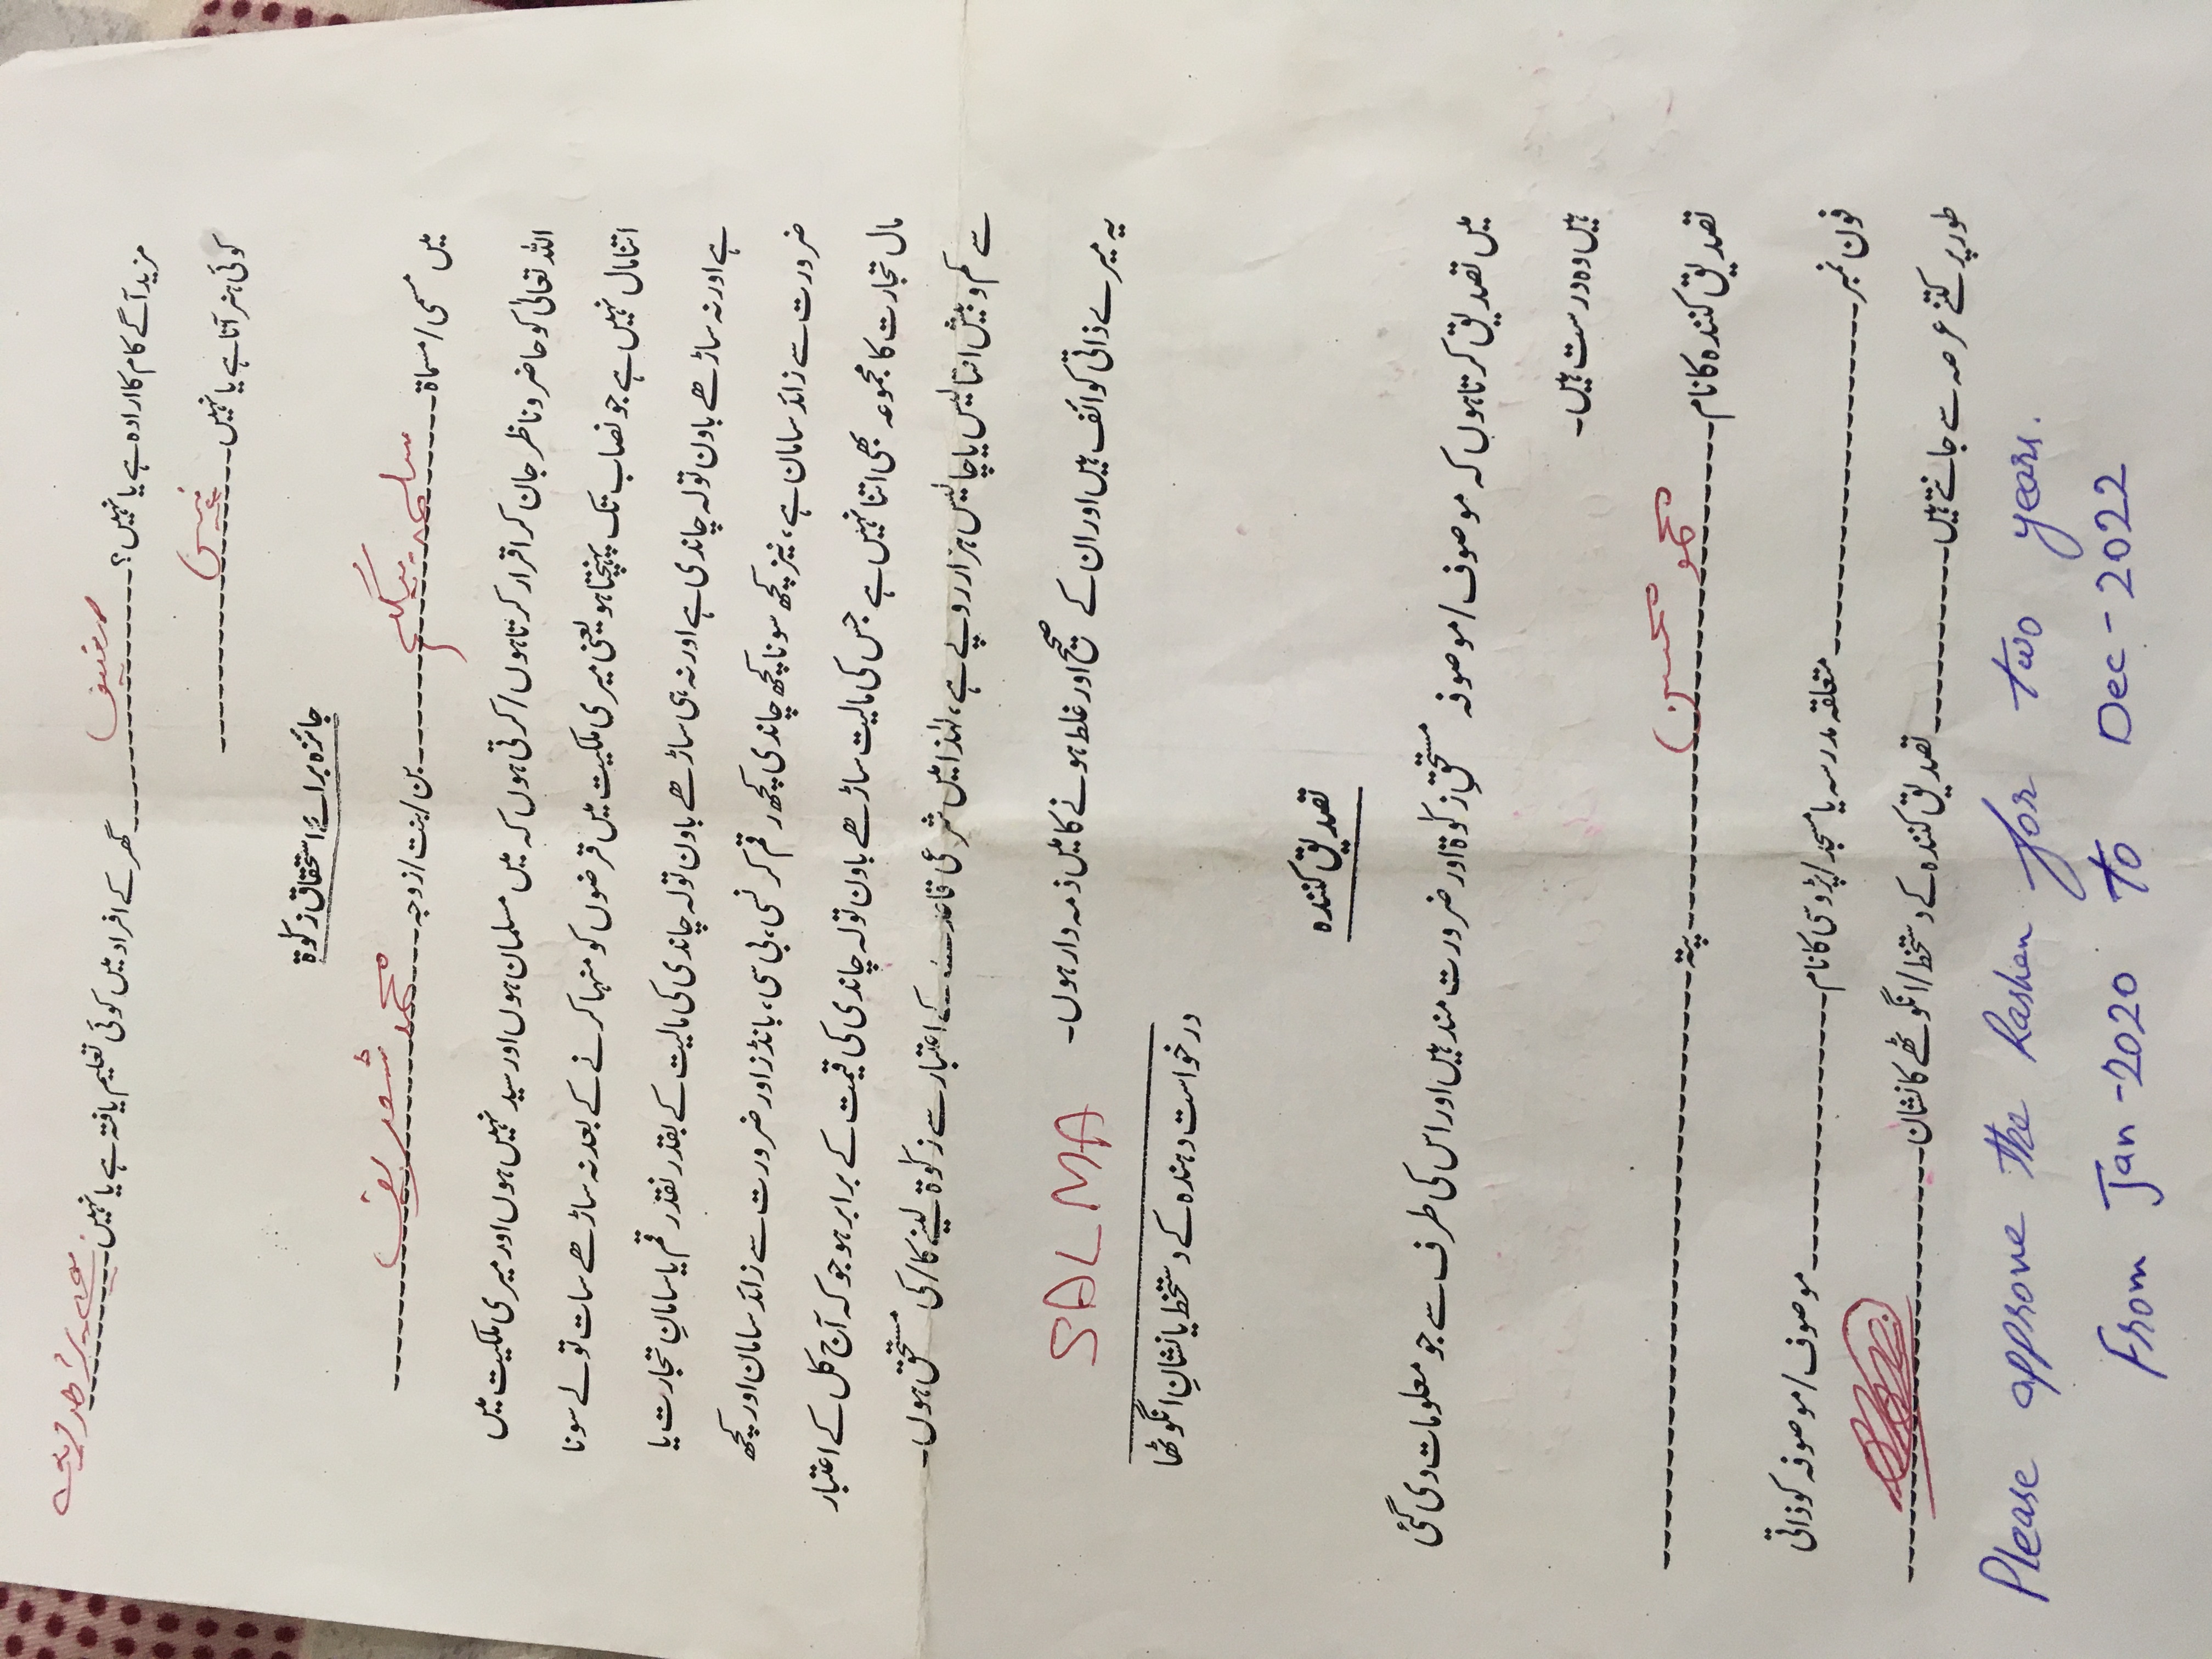 مزید آگے کام کا ارادہ ہے یا نہیں؟ ضعیف گھر کے افراد میں کوئی تعلیم یافتہ ہے یا نہیں
کوئی ہنر آتا ہے یا نہیں نہیں
جائزہ برائے استحقاق زکوٰۃ
میں مسمی/مسماۃ سلمہ بیگم بن/بنت/زوجہ محمد شریف
اللہ تعالیٰ کو حاضر و ناظر جان کر اقرار کرتا ہوں/کرتی ہوں کہ میں مسلمان ہوں اور سید نہیں ہوں اور میری ملکیت میں
اتنا مال نہیں ہے جو نصاب تک پہنچتا ہو یعنی میری ملکیت میں قرضوں کو منہا کرنے کے بعد نہ ساڑھے سات تولے سونا
ہے اور نہ ساڑھے باون تولہ چاندی ہے اور نہ ہی ساڑھے باون تولہ چاندی کی مالیت کے بقدر نقد رقم یا سامانِ تجارت یا
ضرورت سے زائد سامان ہے، نیز کچھ سونا کچھ چاندی کچھ رقم کرنسی، بی سی، بانڈز اور ضرورت سے زائد سامان اور کچھ
مال تجارت کا مجموعہ بھی اتنا نہیں ہے جس کی مالیت ساڑھے باون تولہ چاندی کی قیمت کے برابر ہو جو کہ آج کل کے اعتبار
سے کم و بیش انتالیس یا چالیس ہزار روپے ہے، لہٰذا میں شرعی قاعدے کے اعتبار سے زکوٰۃ لینے کا/کی مستحق ہوں۔
یہ میرے ذاتی کوائف ہیں اور ان کے صحیح اور غلط ہونے کا میں ذمہ دار ہوں۔
SALMA
درخواست دہندہ کے دستخط یا نشانِ انگوٹھا
تصدیق کنندہ
میں تصدیق کرتا ہوں کہ موصوف/موصوفہ مستحقِ زکوٰۃ اور ضرورت مند ہیں اور اس کی طرف سے جو معلومات دی گئی
ہیں وہ درست ہیں۔
تصدیق کنندہ کا نام محمو محسن پتہ
فون نمبر متعلقہ مدرسہ یا مسجد/پڑوسی کا نام موصوف/موصوفہ کو ذاتی
طور پر کتنے عرصہ سے جانتے ہیں تصدیق کنندہ کے دستخط/انگوٹھے کا نشان
Please approve the Rashan for two years.
From Jan-2020 to Dec-2022